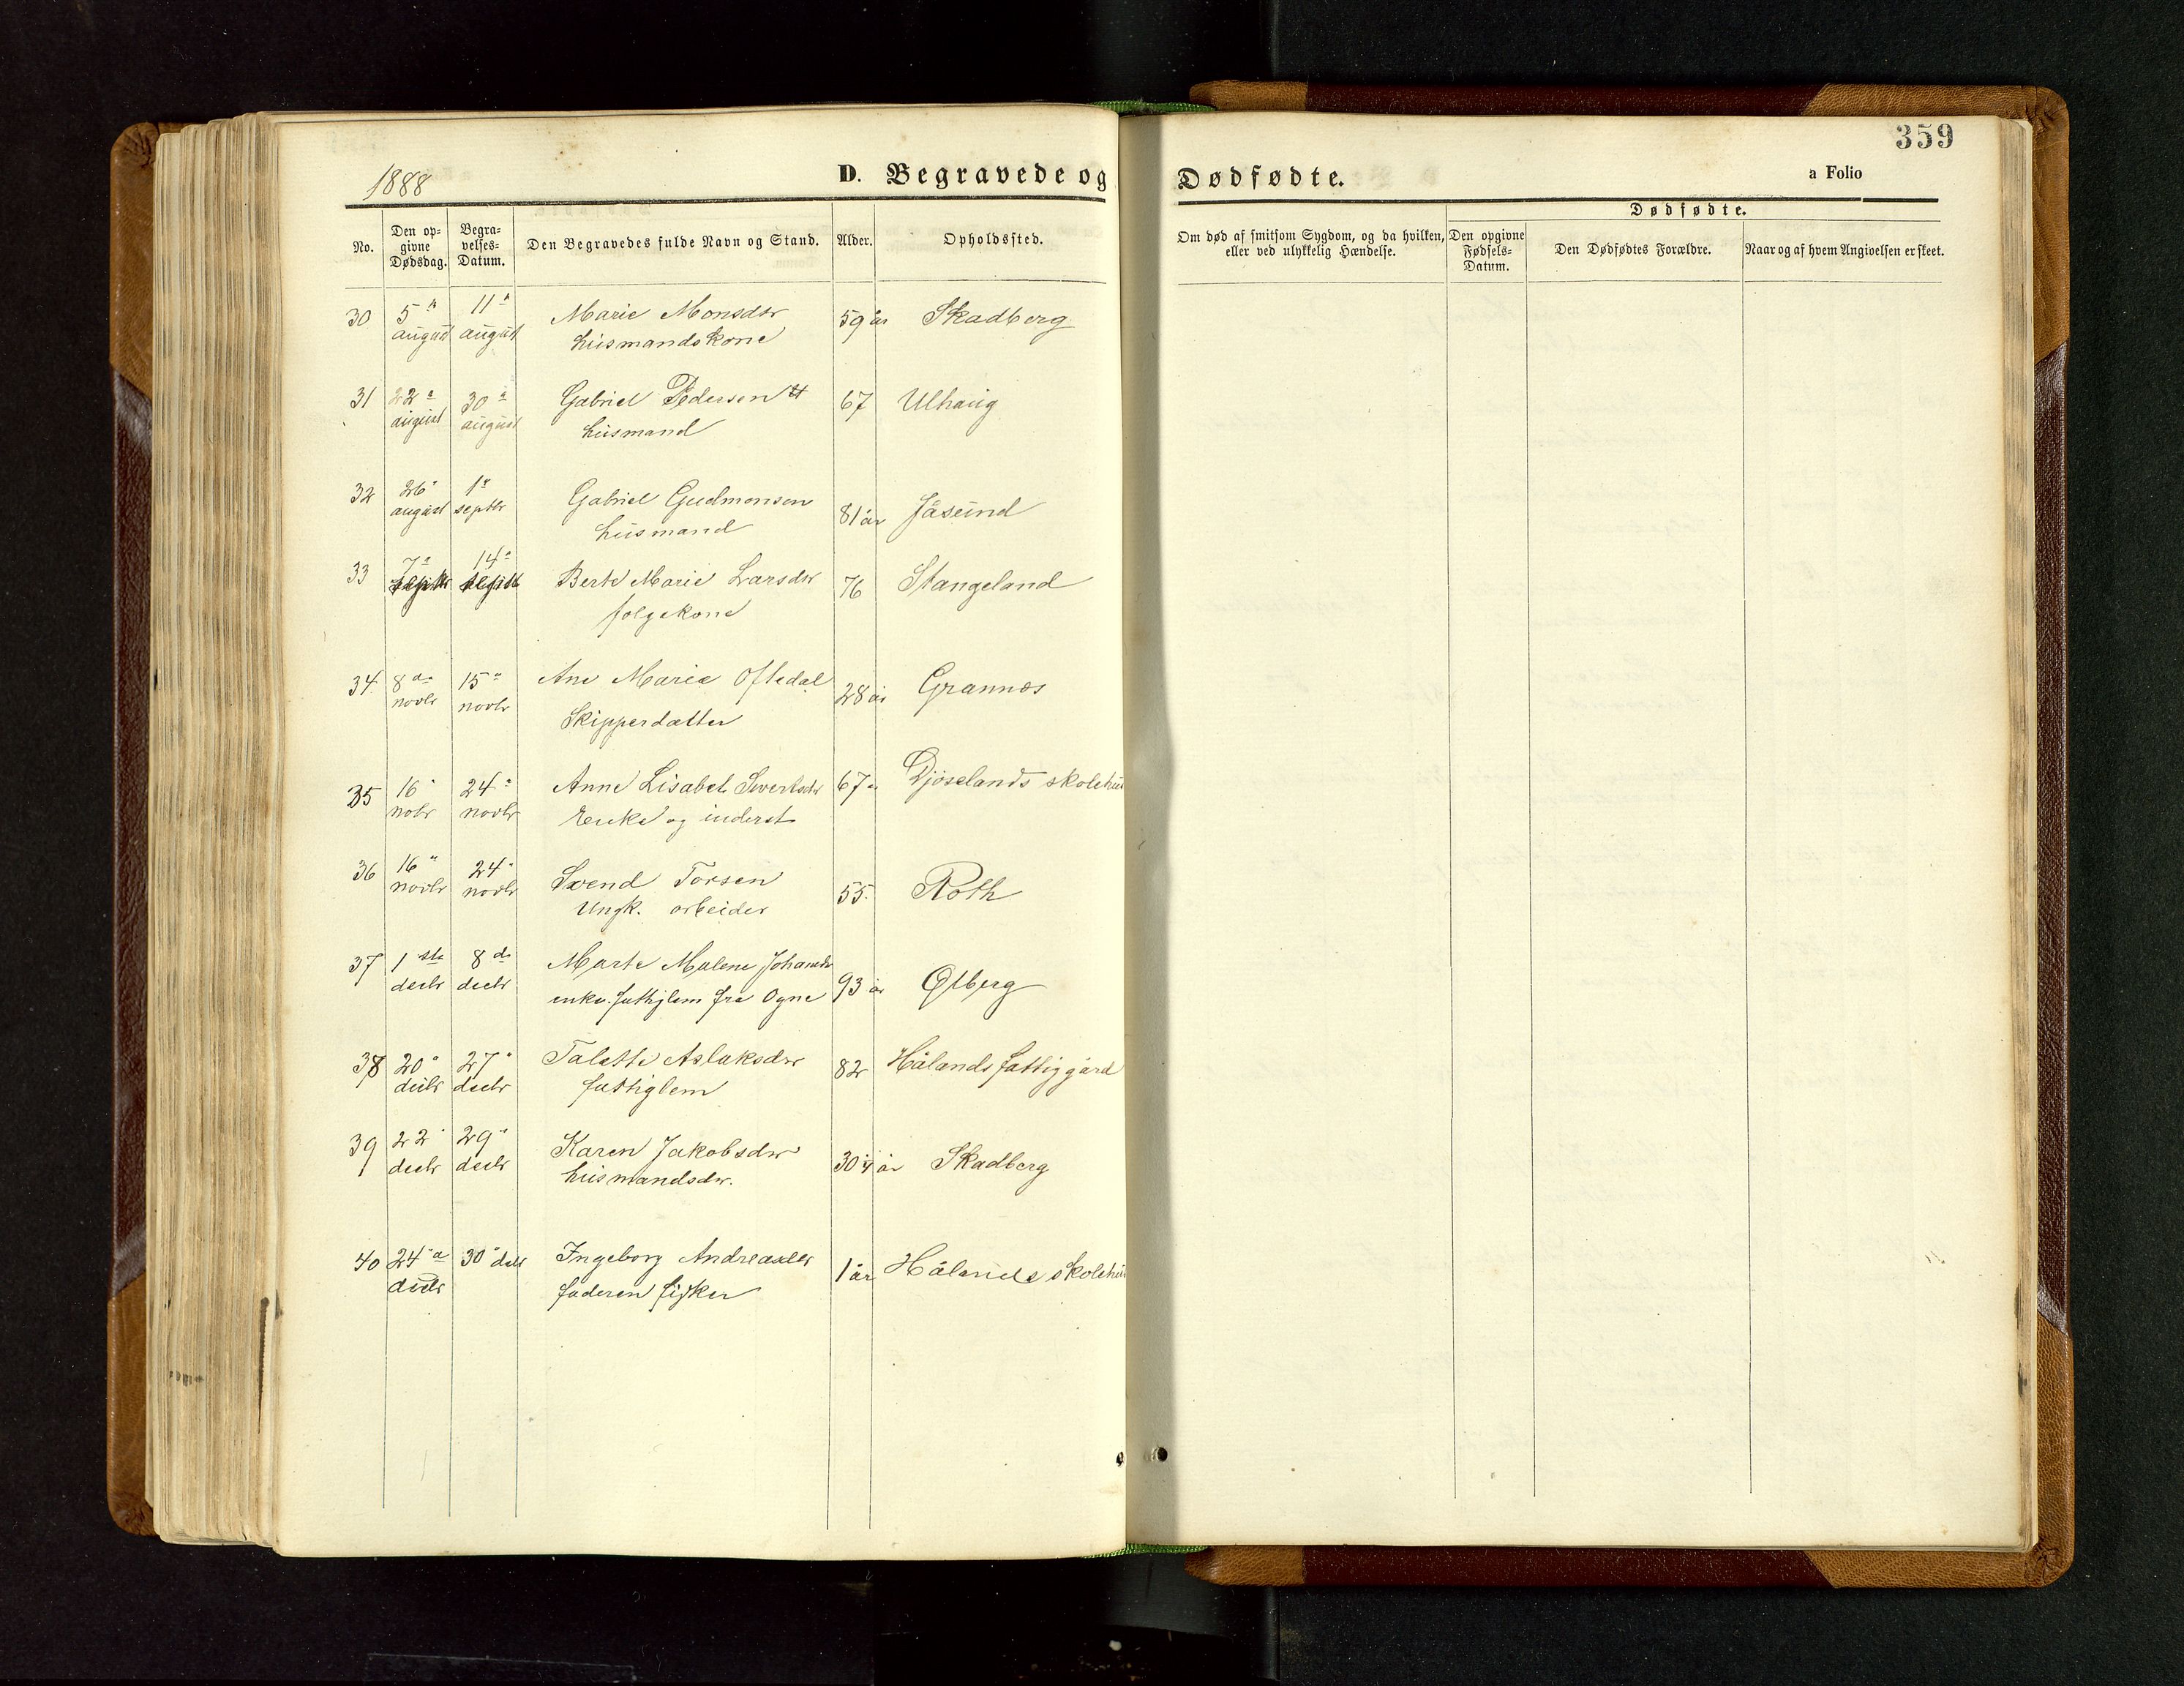 359
1888
D. Begravede og Dødfødte.
a Folio
No.
Den op-
givne
Dødsdag.
Begra-
velses-
Datum.
Den Begravedes fulde Navn og Stand.
Alder.
Opholdssted.
Om død af smitsom Sygdom, og da hvilken,
eller ved ulykkelig Hændelse.
Dødfødte.
Den opgivne
Fødsels-
Datum.
Den Dødfødtes Forældre.
Naar og af hvem Angivelsen er skeet.
30 5 11 Marie Monsdtr 59 år Skadberg
august august husmandskone
31 22 30 Gabriel Pedersen 67 Ulhaug
august august husmand
32 26 1 Gabriel Gudmonsen 81 år Jåsund
august septbr husmand
33 7 14 Berte Marie Larsdtr 76 Stangeland
septbr septbr folgekone
34 8de 15 Ane Marie Oftedal 28 år Grannes
novbr novbr Skipperdatter
35 16 24 Anne Lisabet Sivertsdtr 67 Djöselands skolehus
nobr novbr Enke og inderst
36 16 24 Svend Torsen 55. Roth
novbr novbr Ungk. arbeider
37 1ste 8de Marte Malene Johansdtr 93 år Ølberg
decbr decbr enke. fattiglem fra Ogne
38 20 27 Talette Aslaksdtr 82 Hålands fattiggård
decbr decbr fattiglem
39 22 29 Karen Jakobsdtr 30 år Skadberg
decbr decbr husmandsdtr.
40 24 30 decbr Ingeborg Andreasdtr 1 år Hålands skolehus
decbr faderen fisker